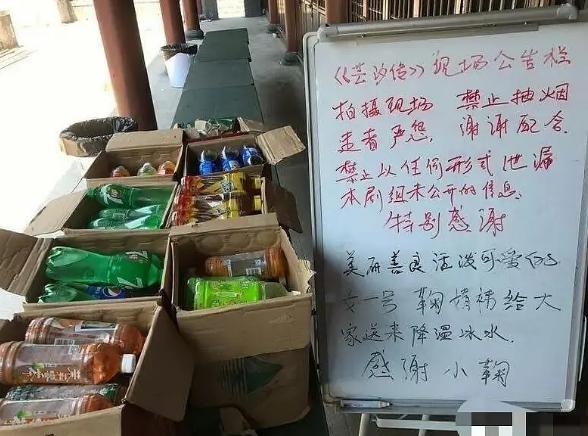 《芸汐传》现场公告栏
拍摄现场 禁止抽烟
违者严惩 谢谢配合
禁止以任何形式泄漏
本剧组未公开的信息.
特别感谢
美丽善良活泼可爱的
女一号 鞠婧祎给大
家送来降温冰水.
感谢 小鞠